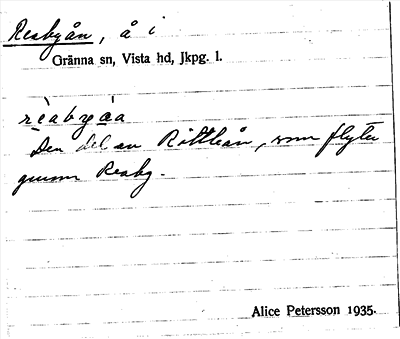 Reabyån, å i
Gränna sn, Vista hd, Jkpg. l.
rèabyáa
Den del av Röttleån, som flyter
genom Reaby.
Alice Petersson 1935.